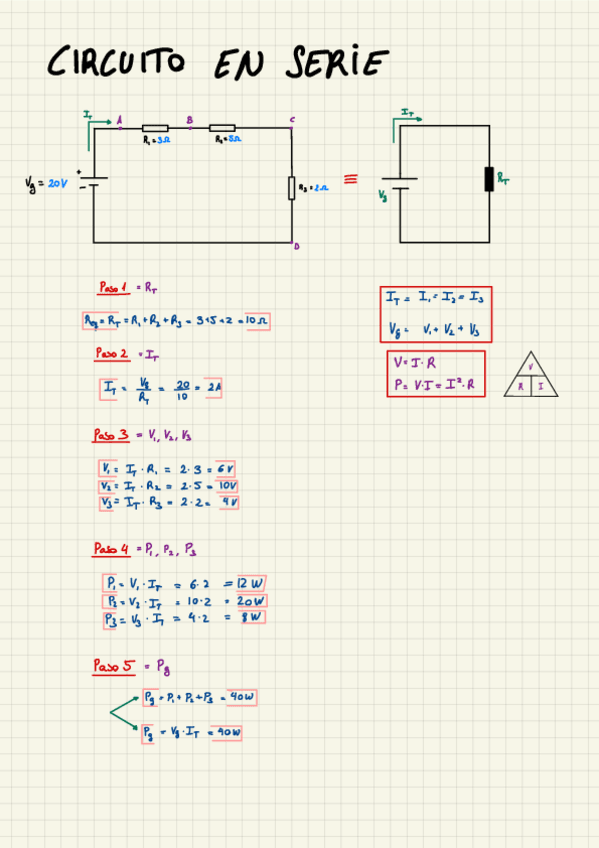 CIRCUITO EN SERIE
I_T
A
B
C
R₁=3Ω
R₂=5Ω
+
-
Vg = 20V
R₃=2Ω
D
≡
I_T
Vg
R_T
Paso 1 = R_T
Req = R_T = R₁ + R₂ + R₃ = 3+5+2 = 10Ω
Paso 2 = I_T
I_T = Vg/R_T = 20/10 = 2A
Paso 3 = V₁, V₂, V₃
V₁ = I_T · R₁ = 2·3 = 6V
V₂ = I_T · R₂ = 2·5 = 10V
V₃ = I_T · R₃ = 2·2 = 4V
Paso 4 = P₁, P₂, P₃
P₁ = V₁ · I_T = 6·2 = 12 W
P₂ = V₂ · I_T = 10·2 = 20W
P₃ = V₃ · I_T = 4·2 = 8W
Paso 5 = Pg
Pg = P₁ + P₂ + P₃ = 40W
Pg = Vg · I_T = 40W
I_T = I₁ = I₂ = I₃
Vg = V₁ + V₂ + V₃
V = I · R
P = V·I = I²·R
V
R
I